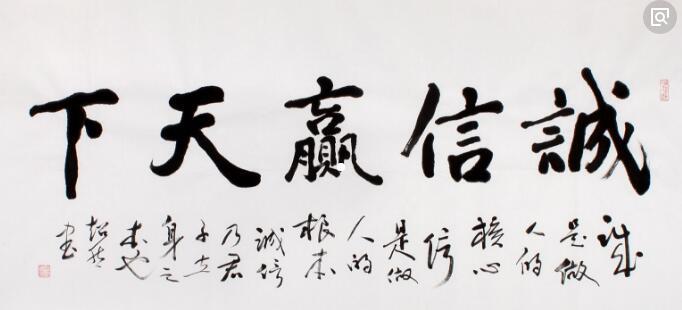 誠信贏天下
诚
是做
人的
核心
信
是做
人的
根本
诚信
乃君
子立
身之
本也
書